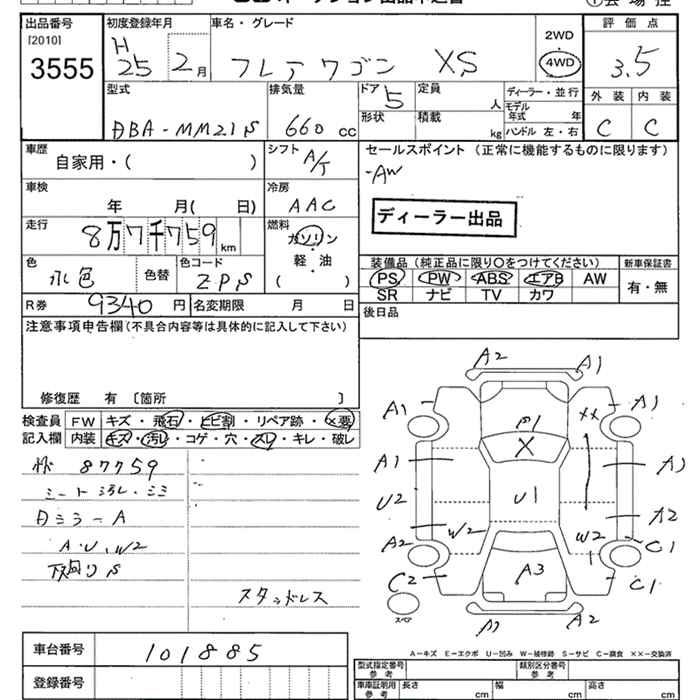 出品番号
[2010]
3555
初度登録年月
H
25 2 月
車名・グレード
フレアワゴン XS
2WD
4WD
評価点
3.5
外装 内装
C C
型式
DBA-MM21S
排気量
660 cc
ドア 5
形状
定員 人
積載 kg
ディーラー・並行
モデル
年式 年
ハンドル 左・右
車歴
自家用・( )
シフト A/T
セールスポイント (正常に機能するものに限ります)
-AW
ディーラー出品
車検
年 月( 日)
冷房
AAC
走行
8万7千759 km
燃料
ガソリン
軽・油
( )
色
水色
色替
色コード
ZPS
装備品 (純正品に限り〇をつけてください)
PS PW ABS エアB AW
SR ナビ TV カワ
新車保証書
有・無
R券 9340 円
名変期限 月 日
後日品
注意事項申告欄(不具合内容等は具体的に記入して下さい)
修復歴 有 〔箇所 〕
検査員
記入欄
FW キズ・飛石・ヒビ割・リペア跡・×要
内装 キズ・汚レ・コゲ・穴・スレ・キレ・破レ
87759
シート汚レ・シミ
Dミラー A
A.U.W2
下回りS
スタッドレス
A2 A1
A1 A1 XX A1
X
A1 A1
U2 U1
A2
W2 W2
A2 C1
C2 A3 C1
スペア
A1 A2
A－キズ E－エクボ U－凹み W－補修跡 S－サビ C－腐食 ××－交換済
車台番号 101885
登録番号
型式指定番号
参考
類別区分番号
参考
車庫証明用
参考
長さ cm
幅 cm
高さ cm